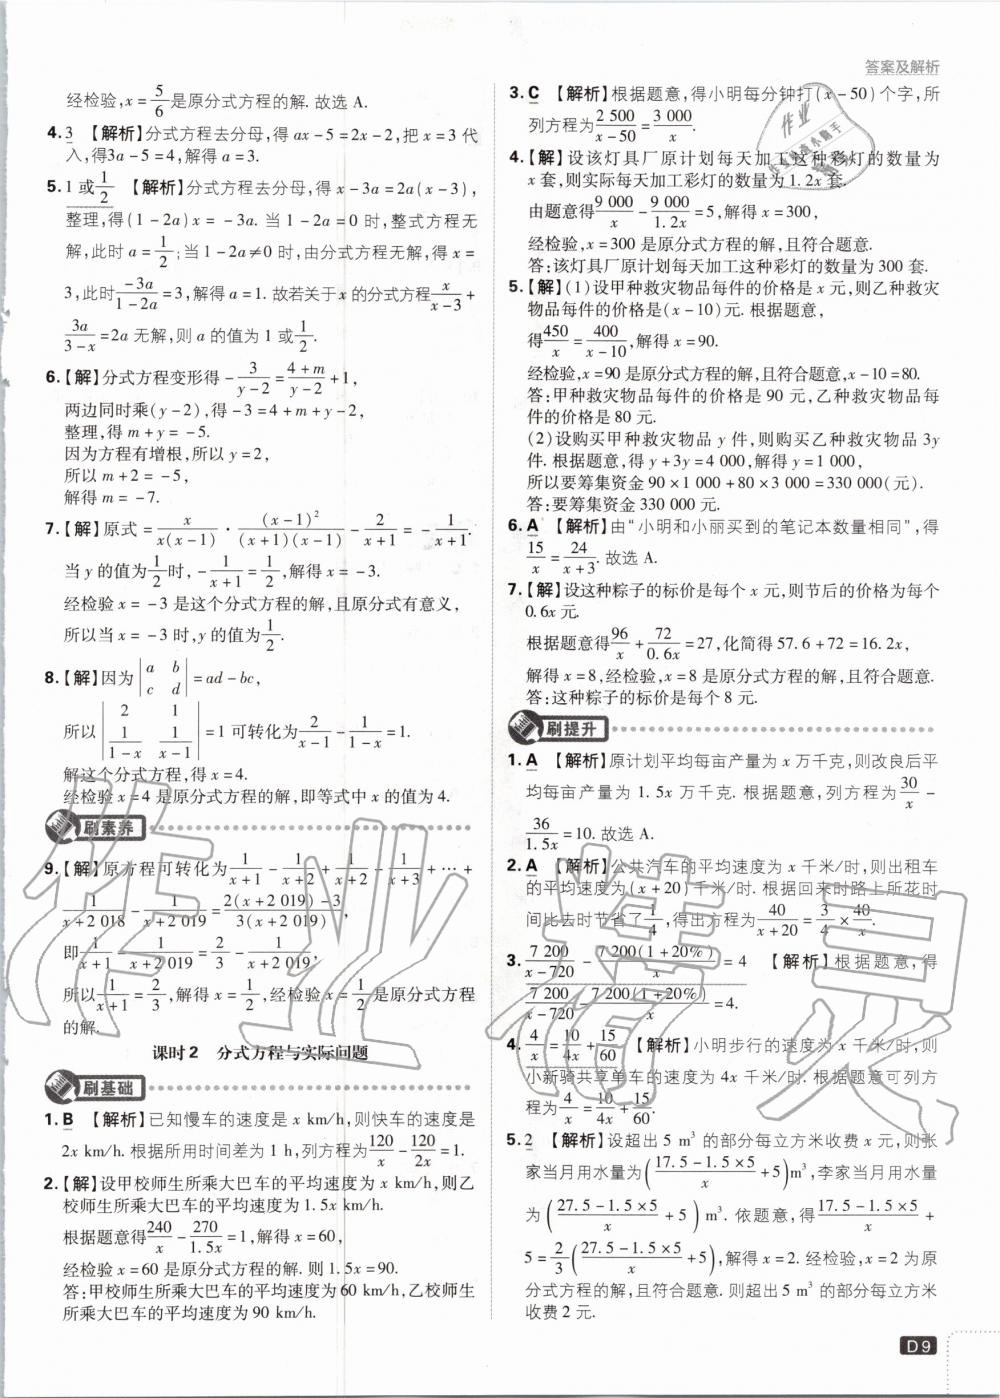 答案及解析
经检验,x=5/6是原分式方程的解. 故选 A.
4. 3 【解析】分式方程去分母,得 ax-5=2x-2,把 x=3 代
入,得3a-5=4,解得 a=3.
5. 1 或1/2 【解析】分式方程去分母,得 x-3a=2a(x-3),
整理,得(1-2a)x=-3a. 当 1-2a=0 时,整式方程无
解,此时 a=1/2;当 1-2a≠0 时,由分式方程无解,得 x=
3,此时(-3a)/(1-2a)=3,解得 a=1. 故若关于 x 的分式方程x/(x-3)+
3a/(3-x)=2a 无解,则 a 的值为 1 或1/2.
6.【解】分式方程变形得-3/(y-2)=(4+m)/(y-2)+1,
两边同时乘(y-2),得-3=4+m+y-2,
整理,得 m+y=-5.
因为方程有增根,所以 y=2,
所以 m+2=-5,
解得 m=-7.
7.【解】原式=x/(x(x-1))·(x-1)²/((x+1)(x-1))-2/(x+1)=-1/(x+1).
当 y 的值为1/2时,-1/(x+1)=1/2,解得 x=-3.
经检验 x=-3 是这个分式方程的解,且原分式有意义,
所以当 x=-3 时,y 的值为1/2.
8.【解】因为|a b; c d|=ad-bc,
所以|2 1; 1/(1-x) 1/(x-1)|=1 可转化为2/(x-1)-1/(1-x)=1.
解这个分式方程,得 x=4.
经检验 x=4 是原分式方程的解,即等式中 x 的值为 4.
刷素养
9.【解】原方程可转化为1/(x+1)-1/(x+2)+1/(x+2)-1/(x+3)+…+
1/(x+2 018)-1/(x+2 019)=(2(x+2 019)-3)/(3(x+2 019)),
即1/(x+1)-1/(x+2 019)=2/3-1/(x+2 019),
所以1/(x+1)=2/3,解得 x=1/2,经检验 x=1/2是原分式方程
的解.
课时2 分式方程与实际问题
刷基础
1. B 【解析】已知慢车的速度是 x km/h,则快车的速度是
2x km/h. 根据所用时间差为 1 h,列方程为120/x-120/2x=1.
2.【解】设甲校师生所乘大巴车的平均速度为 x km/h,则乙
校师生所乘大巴车的平均速度为 1.5x km/h.
根据题意得240/x-270/1.5x=1,解得 x=60,
经检验 x=60 是原分式方程的解. 则 1.5x=90.
答:甲校师生所乘大巴车的平均速度为 60 km/h,乙校师
生所乘大巴车的平均速度为 90 km/h.
3. C 【解析】根据题意,得小明每分钟打(x-50)个字,所
列方程为2 500/(x-50)=3 000/x.
4.【解】设该灯具厂原计划每天加工这种彩灯的数量为
x 套,则实际每天加工彩灯的数量为 1.2x 套.
由题意得9 000/x-9 000/1.2x=5,解得 x=300,
经检验,x=300 是原分式方程的解,且符合题意.
答:该灯具厂原计划每天加工这种彩灯的数量为 300 套.
5.【解】(1)设甲种救灾物品每件的价格是 x 元,则乙种救灾
物品每件的价格是(x-10)元. 根据题意,
得450/x=400/(x-10),解得 x=90.
经检验,x=90 是原分式方程的解,且符合题意,x-10=80.
答:甲种救灾物品每件的价格是 90 元,乙种救灾物品每
件的价格是 80 元.
(2)设购买甲种救灾物品 y 件,则购买乙种救灾物品 3y
件. 根据题意,得 y+3y=4 000,解得 y=1 000,
所以要筹集资金 90×1 000+80×3 000=330 000(元).
答:要筹集资金 330 000 元.
6. A 【解析】由“小明和小丽买到的笔记本数量相同”,得
15/x=24/(x+3). 故选 A.
7.【解】设这种粽子的标价是每个 x 元,则节后的价格为每个
0.6x 元.
根据题意得96/x+72/0.6x=27,化简得 57.6+72=16.2x,
解得 x=8,经检验,x=8 是原分式方程的解,且符合题意.
答:这种粽子的标价是每个 8 元.
刷提升
1. A 【解析】原计划平均每亩产量为 x 万千克,则改良后平
均每亩产量为 1.5x 万千克. 根据题意,列方程为30/x-
36/1.5x=10. 故选 A.
2. A 【解析】公共汽车的平均速度为 x 千米/时,则出租车
的平均速度为(x+20)千米/时. 根据回来时路上所花时
间比去时节省了1/4,得出方程为40/(x+20)=3/4×40/x.
3. 7 200/(x-720)-7 200(1+20%)/x=4 【解析】根据题意,得
7 200/(x-720)-7 200(1+20%)/x=4.
4. 4/x=10/4x+15/60 【解析】小明步行的速度为 x 千米/时,则
小新骑共享单车的速度为 4x 千米/时. 根据题意可列方
程为4/x=10/4x+15/60.
5. 2 【解析】设超出 5 m³ 的部分每立方米收费 x 元,则张
家当月用水量为((17.5-1.5×5)/x+5)m³,李家当月用水量
为((27.5-1.5×5)/x+5)m³. 依题意,得(17.5-1.5×5)/x+
5=2/3((27.5-1.5×5)/x+5),解得 x=2. 经检验,x=2 为原
分式方程的解,且符合题意. 则超出 5 m³ 的部分每立方米
收费 2 元.
D9
作业精灵